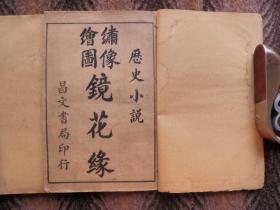 歷史小説
繡像
繪圖
鏡花緣
昌文書局印行